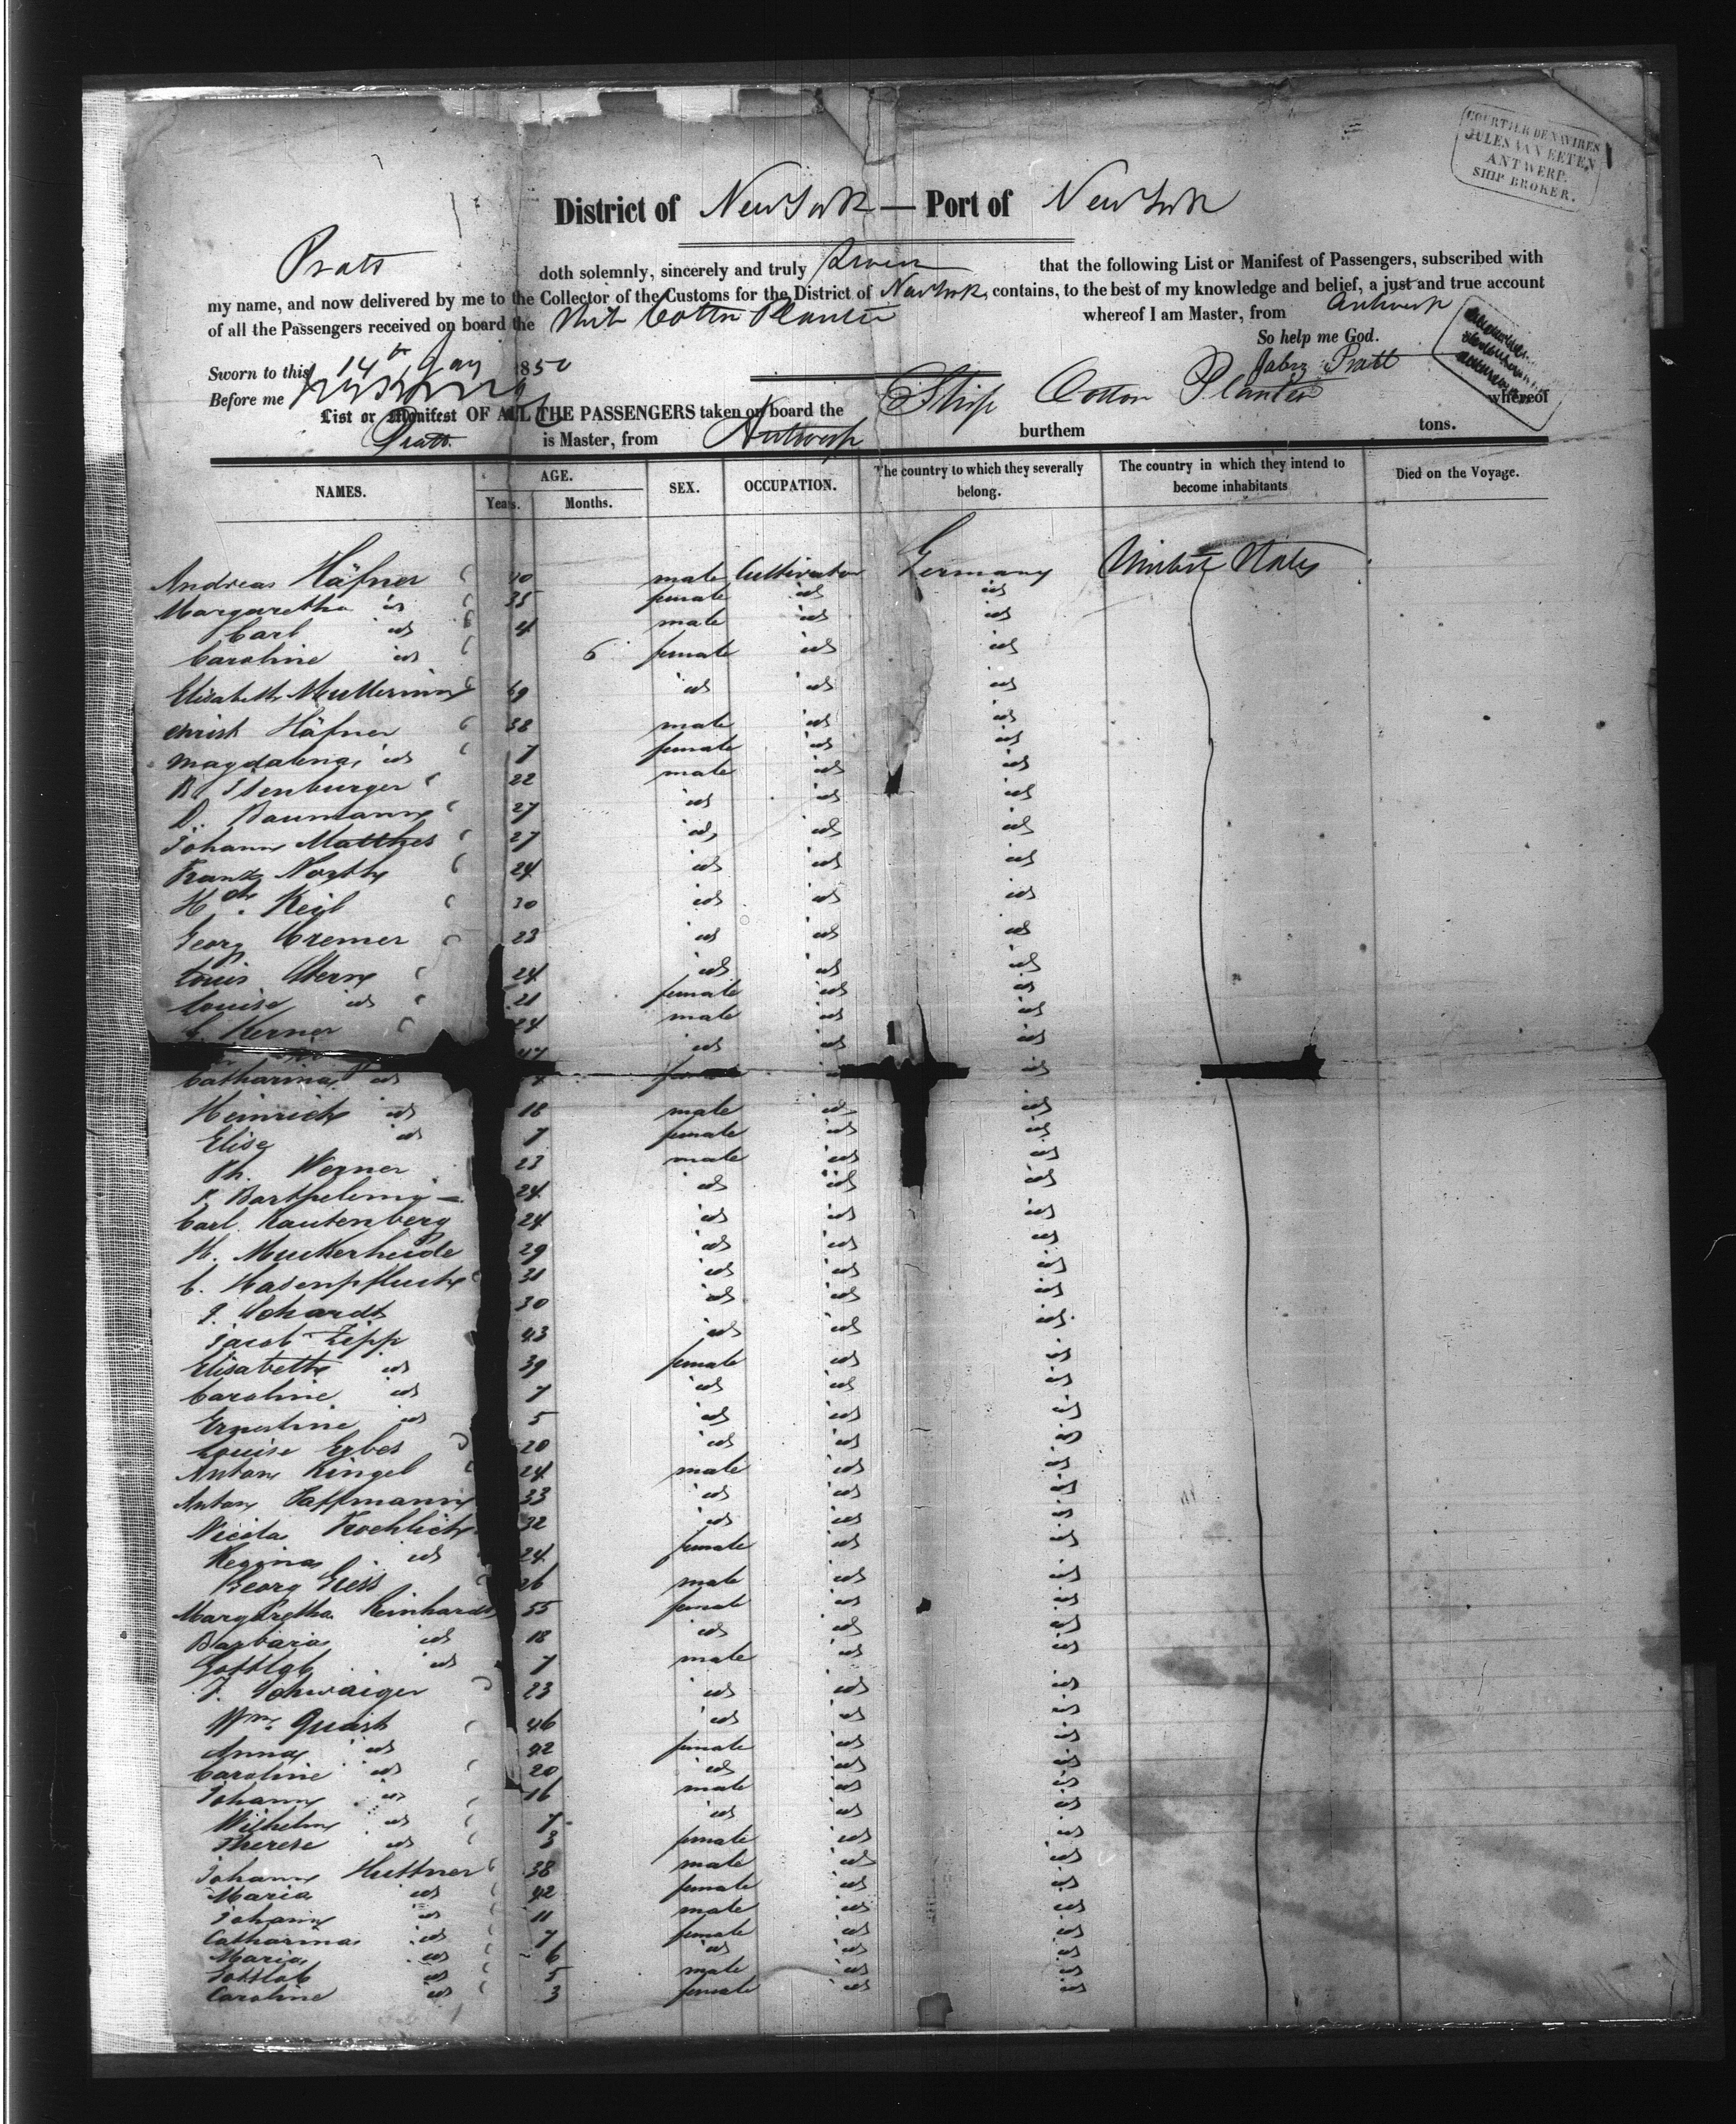 COURTIER DE NAVIRES
JULES VAN EETEN
ANTWERP.
SHIP BROKER.
District of New York — Port of New York
Pratt doth solemnly, sincerely and truly Swear that the following List or Manifest of Passengers, subscribed with
my name, and now delivered by me to the Collector of the Customs for the District of New York, contains, to the best of my knowledge and belief, a just and true account
of all the Passengers received on board the Ship Cotton Planter whereof I am Master, from Antwerp
So help me God.
Sworn to this 14th Jany 1850
Jabez Pratt
Before me
List or Manifest OF ALL THE PASSENGERS taken on board the Ship Cotton Planter whereof
Pratt is Master, from Antwerp burthem tons.
NAMES. AGE. Years. Months. SEX. OCCUPATION. The country to which they severally belong. The country in which they intend to become inhabitants Died on the Voyage.
Andreas Häfner 40 male Cultivator Germany United States
Margaretha id 35 female id id
Carl id 4 male id id
Caroline id 6 female id id
Elisabeth 69 id id id
Christ Häfner 38 male id id
Magdalena id 7 female id id
B. Isenburger 22 male id id
D. Baumann 27 id id id
Johann Matthes 27 id id id
Franz North 24 id id id
Hch. Keil 30 id id id
Georg Cremer 23 id id id
Louis Stern 24 id id id
Louise id 21 female id id
C. Kerner 24 male id id
47 id id id
Catharina id id
Heinrich id 18 male id id
Elise id 7 female id id
Ph. Werner 23 male id id
P. Barthelemy 24 id id id
Carl Rautenberg 24 id id id
H. Muckerheide 29 id id id
C. Hasenpfluch 31 id id id
J. Schardt 30 id id id
Jacob Zipp 43 id id id
Elisabeth id 39 female id id
Caroline id 7 id id id
Ernestine id 5 id id id
Louise Erbes 20 id id id
Anton Ringel 24 male id id
Anton Hoffmann 33 id id id
Nicola Froehlich 32 id id id
Regina id 24 female id id
Georg Giess 26 male id id
Margaretha Reinhardt 55 female id id
Barbara id 18 id id id
Gottlob id 7 male id id
J. Schwaiger 23 id id id
Wm. Quast 46 id id id
Anna id 42 female id id
Caroline id 20 id id id
Johann id 16 male id id
Wilhelm id 7 id id id
Therese id 3 female id id
Johann Huttner 38 male id id
Maria id 42 female id id
Johann id 11 male id id
Catharina id 7 female id id
Maria id 6 id id id
Gottlob id 5 male id id
Caroline id 3 female id id